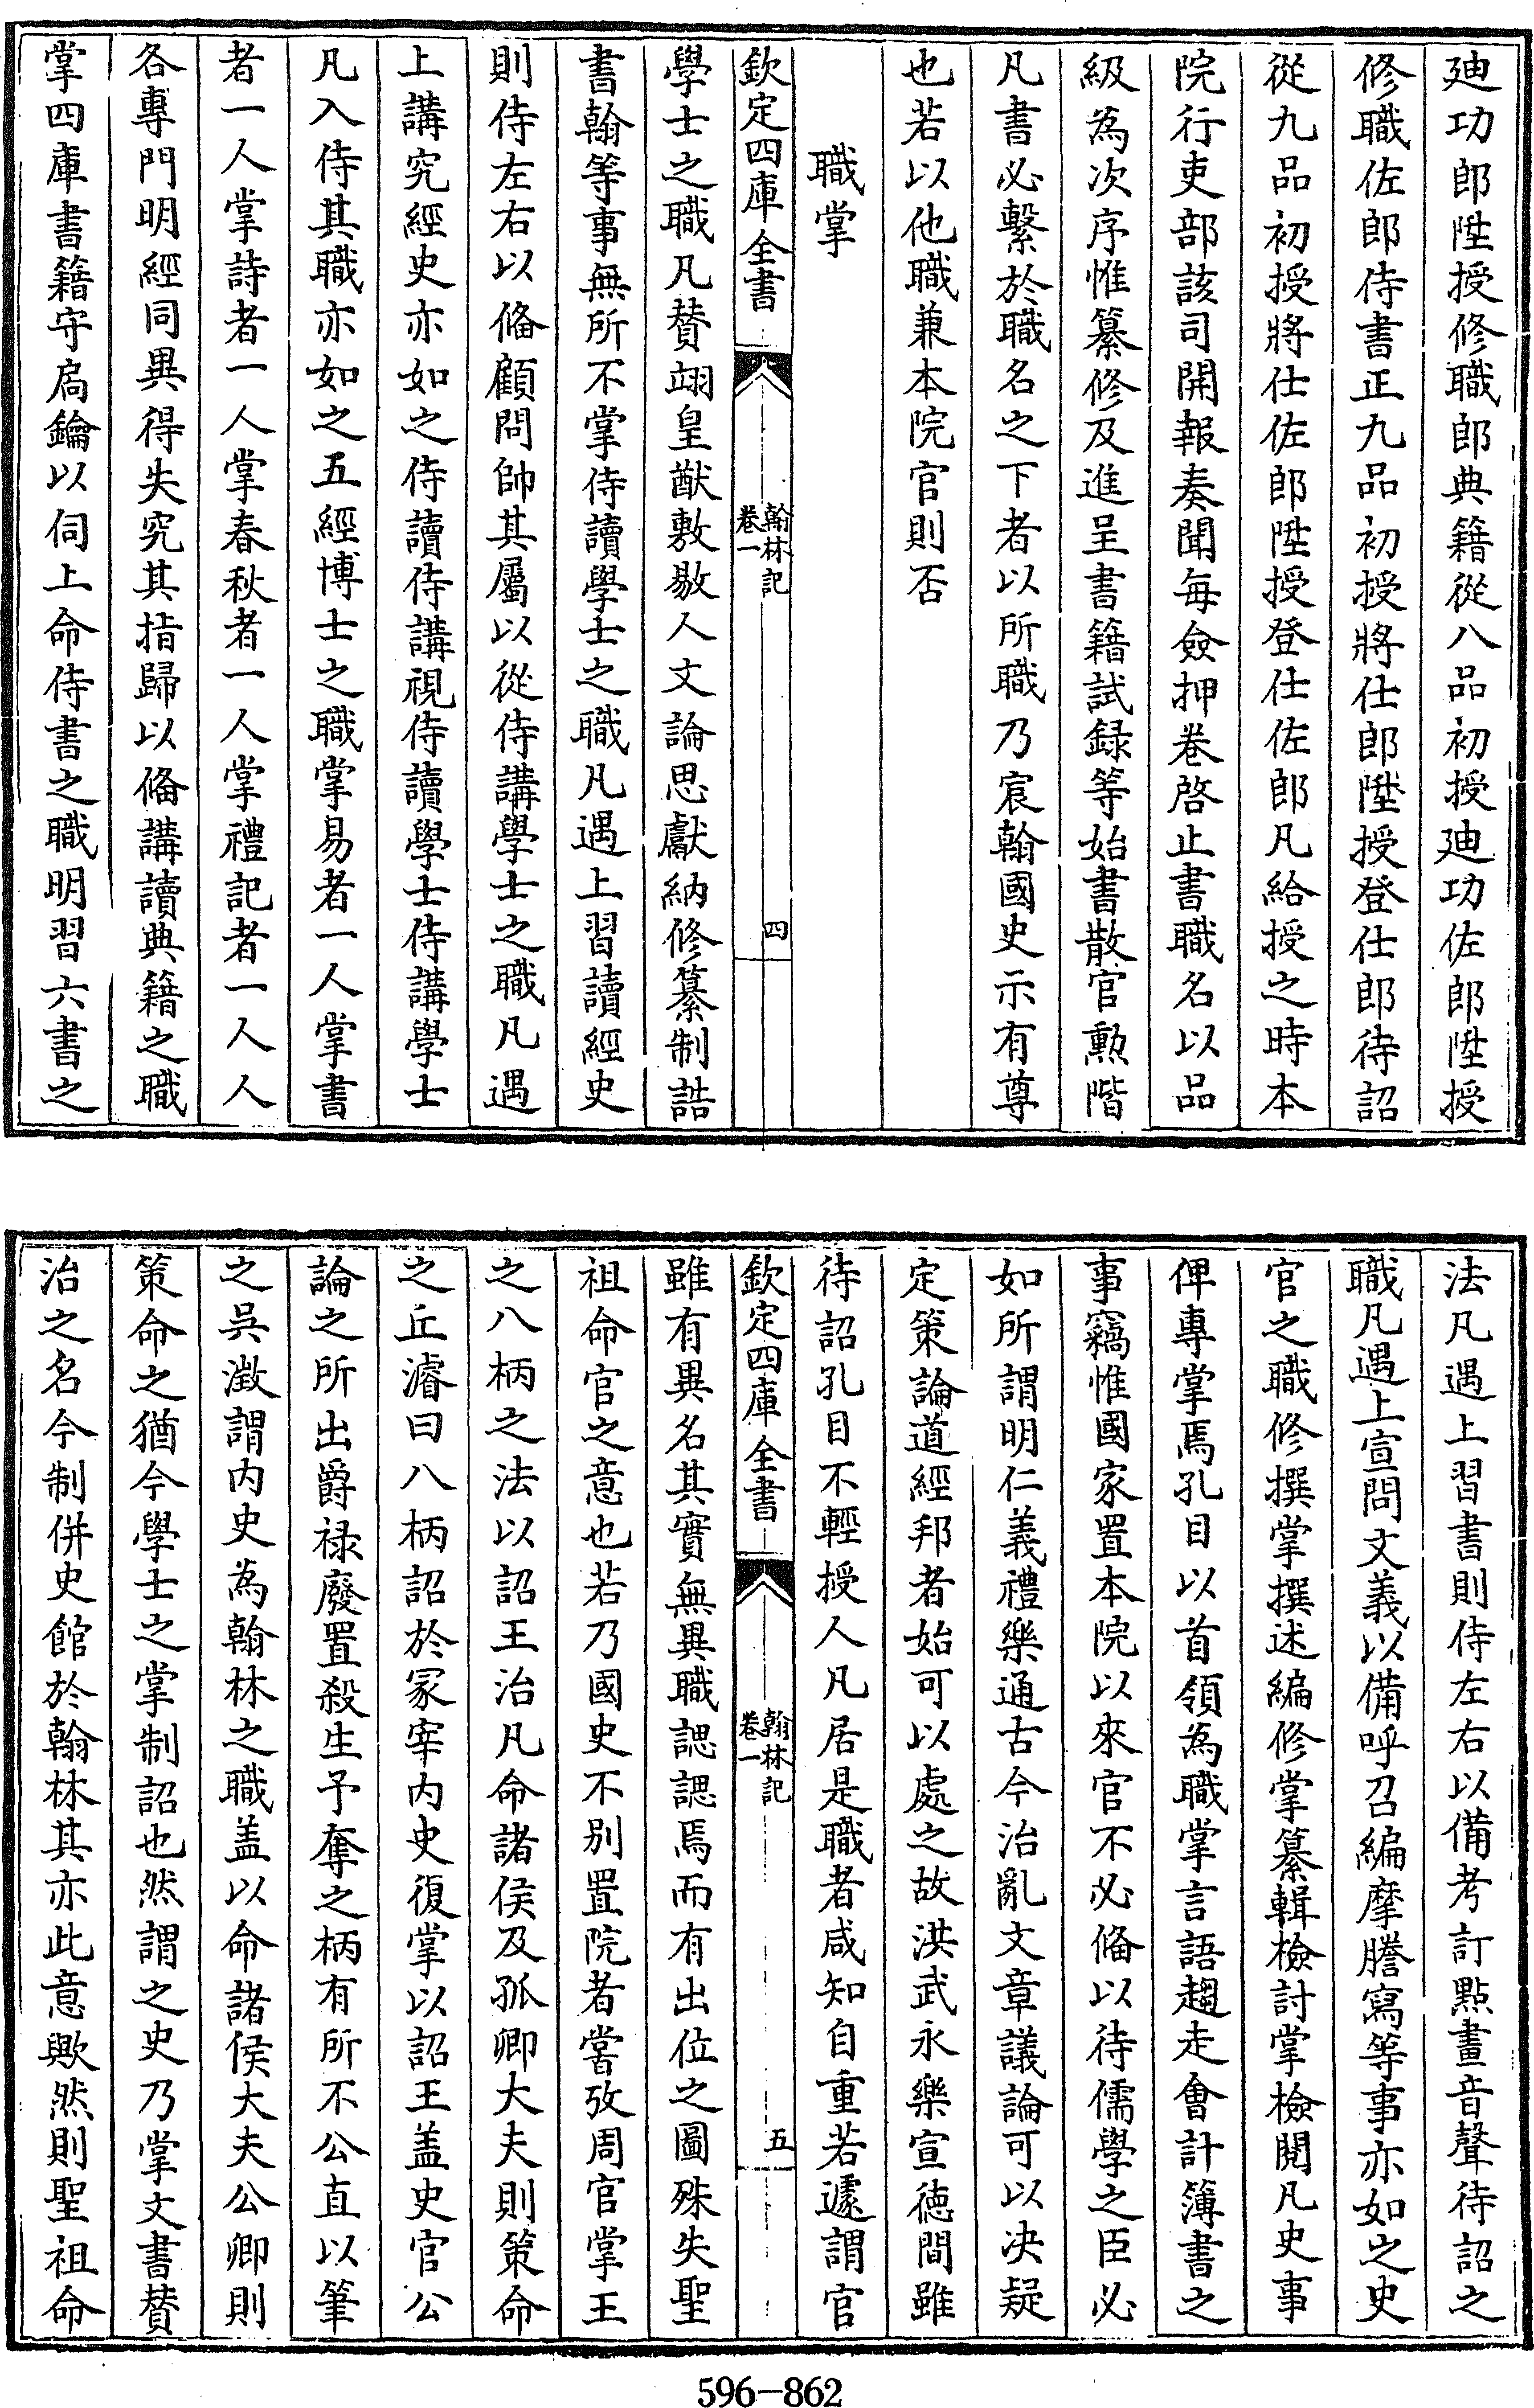 廸功郎陞授修職郎典籍從八品初授廸功佐郎陞授
修職佐郎侍書正九品初授將仕郎陞授登仕郎待詔
從九品初授將仕佐郎陞授登仕佐郎凡給授之時本
院行吏部該司開報奏聞每僉押卷啓止書職名以品
級為次序惟纂修及進呈書籍試録等始書散官勲階
凡書必繫於職名之下者以所職乃宸翰國史示有尊
也若以他職兼本院官則否
職掌
欽定四庫全書
翰林記
卷一
四
學士之職凡賛翊皇猷敷敭人文論思獻納修纂制誥
書翰等事無所不掌侍讀學士之職凡遇上習讀經史
則侍左右以俻顧問帥其屬以從侍講學士之職凡遇
上講究經史亦如之侍讀侍講視侍讀學士侍講學士
凡入侍其職亦如之五經博士之職掌易者一人掌書
者一人掌詩者一人掌春秋者一人掌禮記者一人人
各專門明經同異得失究其指歸以俻講讀典籍之職
掌四庫書籍守扄鑰以伺上命侍書之職明習六書之
法凡遇上習書則侍左右以備考訂點畫音聲待詔之
職凡遇上宣問文義以備呼召編摩謄寫等事亦如之史
官之職修撰掌撰述編修掌纂輯檢討掌檢閱凡史事
俾專掌焉孔目以首領為職掌言語趨走會計簿書之
事竊惟國家置本院以來官不必俻以待儒學之臣必
如所謂明仁義禮樂通古今治亂文章議論可以决疑
定策論道經邦者始可以處之故洪武永樂宣徳間雖
待詔孔目不輕授人凡居是職者咸知自重若遽謂官
欽定四庫全書
翰林記
卷一
五
雖有異名其實無異職諰諰焉而有出位之圖殊失聖
祖命官之意也若乃國史不别置院者嘗攷周官掌王
之八柄之法以詔王治凡命諸侯及孤卿大夫則策命
之丘濬曰八柄詔於冢宰内史復掌以詔王盖史官公
論之所出爵祿廢置殺生予奪之柄有所不公直以筆
之吳澂謂内史為翰林之職盖以命諸侯大夫公卿則
策命之猶今學士之掌制詔也然謂之史乃掌文書賛
治之名今制併史館於翰林其亦此意歟然則聖祖命
596-862